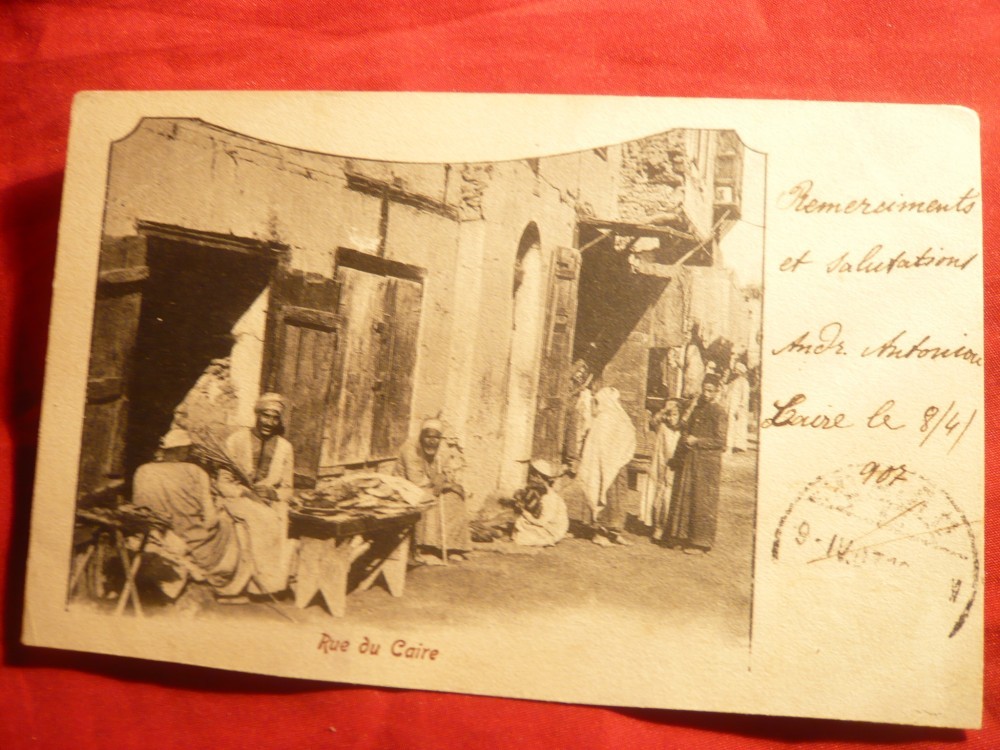 Remerciments
et salutations
Andr. Antoniou
Caire le 8/4/
907
9-IV.07
Rue du Caire